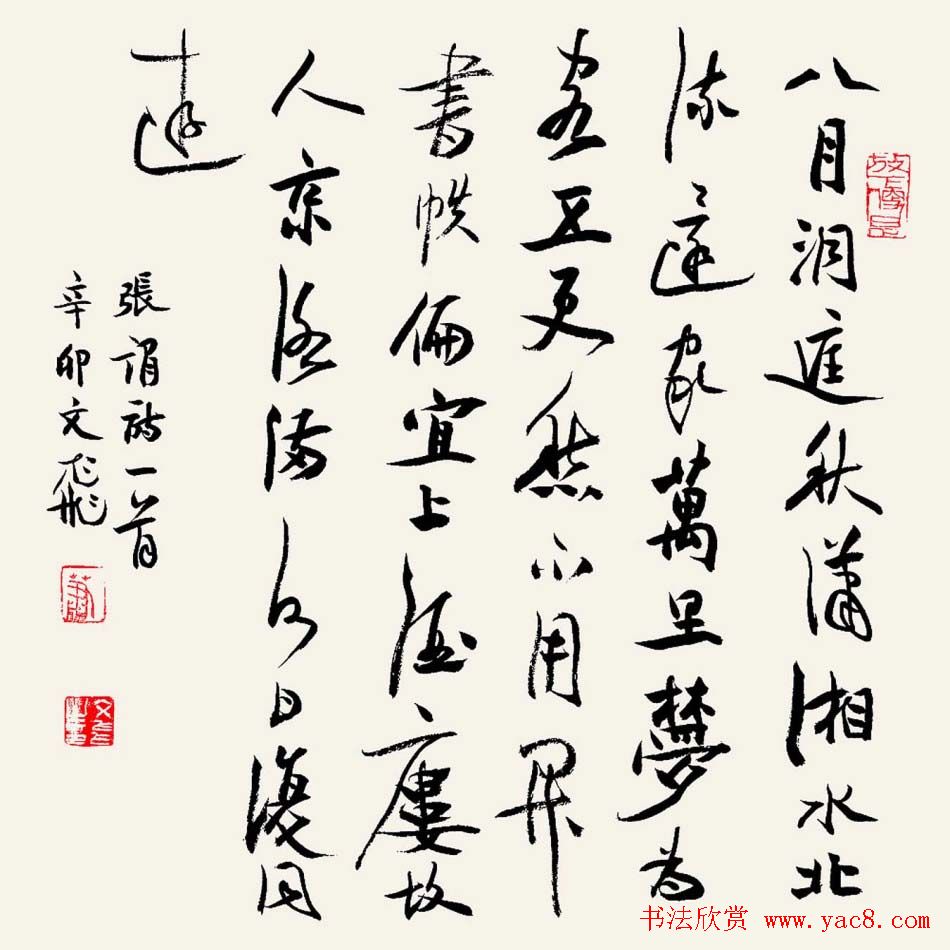 八月洞庭秋瀟湘水北
流還家萬里夢為
客五更愁不用開
書帙偏宜上酒廔故
人京洛滿何日復同
遊
張謂詩一首
辛卯文飛
书法欣赏 www.yac8.com